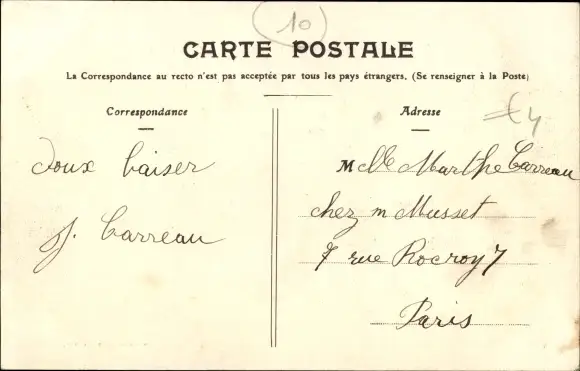 10
CARTE POSTALE
La Correspondance au recto n'est pas acceptée par tous les pays étrangers. (Se renseigner à la Poste)
Correspondance
doux baiser
J. Carreau
Adresse
€4
Mlle Marthe Carreau
chez m Musset
7 rue Rocroy 7
Paris